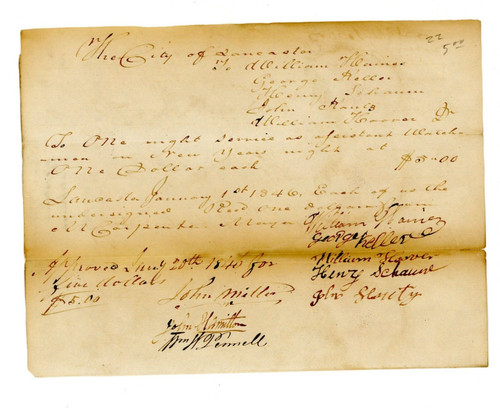 22
5.00
The City of Lancaster
To William Haines
George Keller
Henry Schaum
John
William Hoover Dr
To One night service as assistant Watch-
men on New Years night at
One Dollar each $5.00
Lancaster January 1st 1846. Each of us the
undersigned Recd one dollar from
M Carpenter Mayor William Haines
George Keller
William Hoover
Henry Schaum
John
Approved Jany 20th 1846 for
five dollars
$5.00
John Miller
John Hamilton
Wm H. Pennell